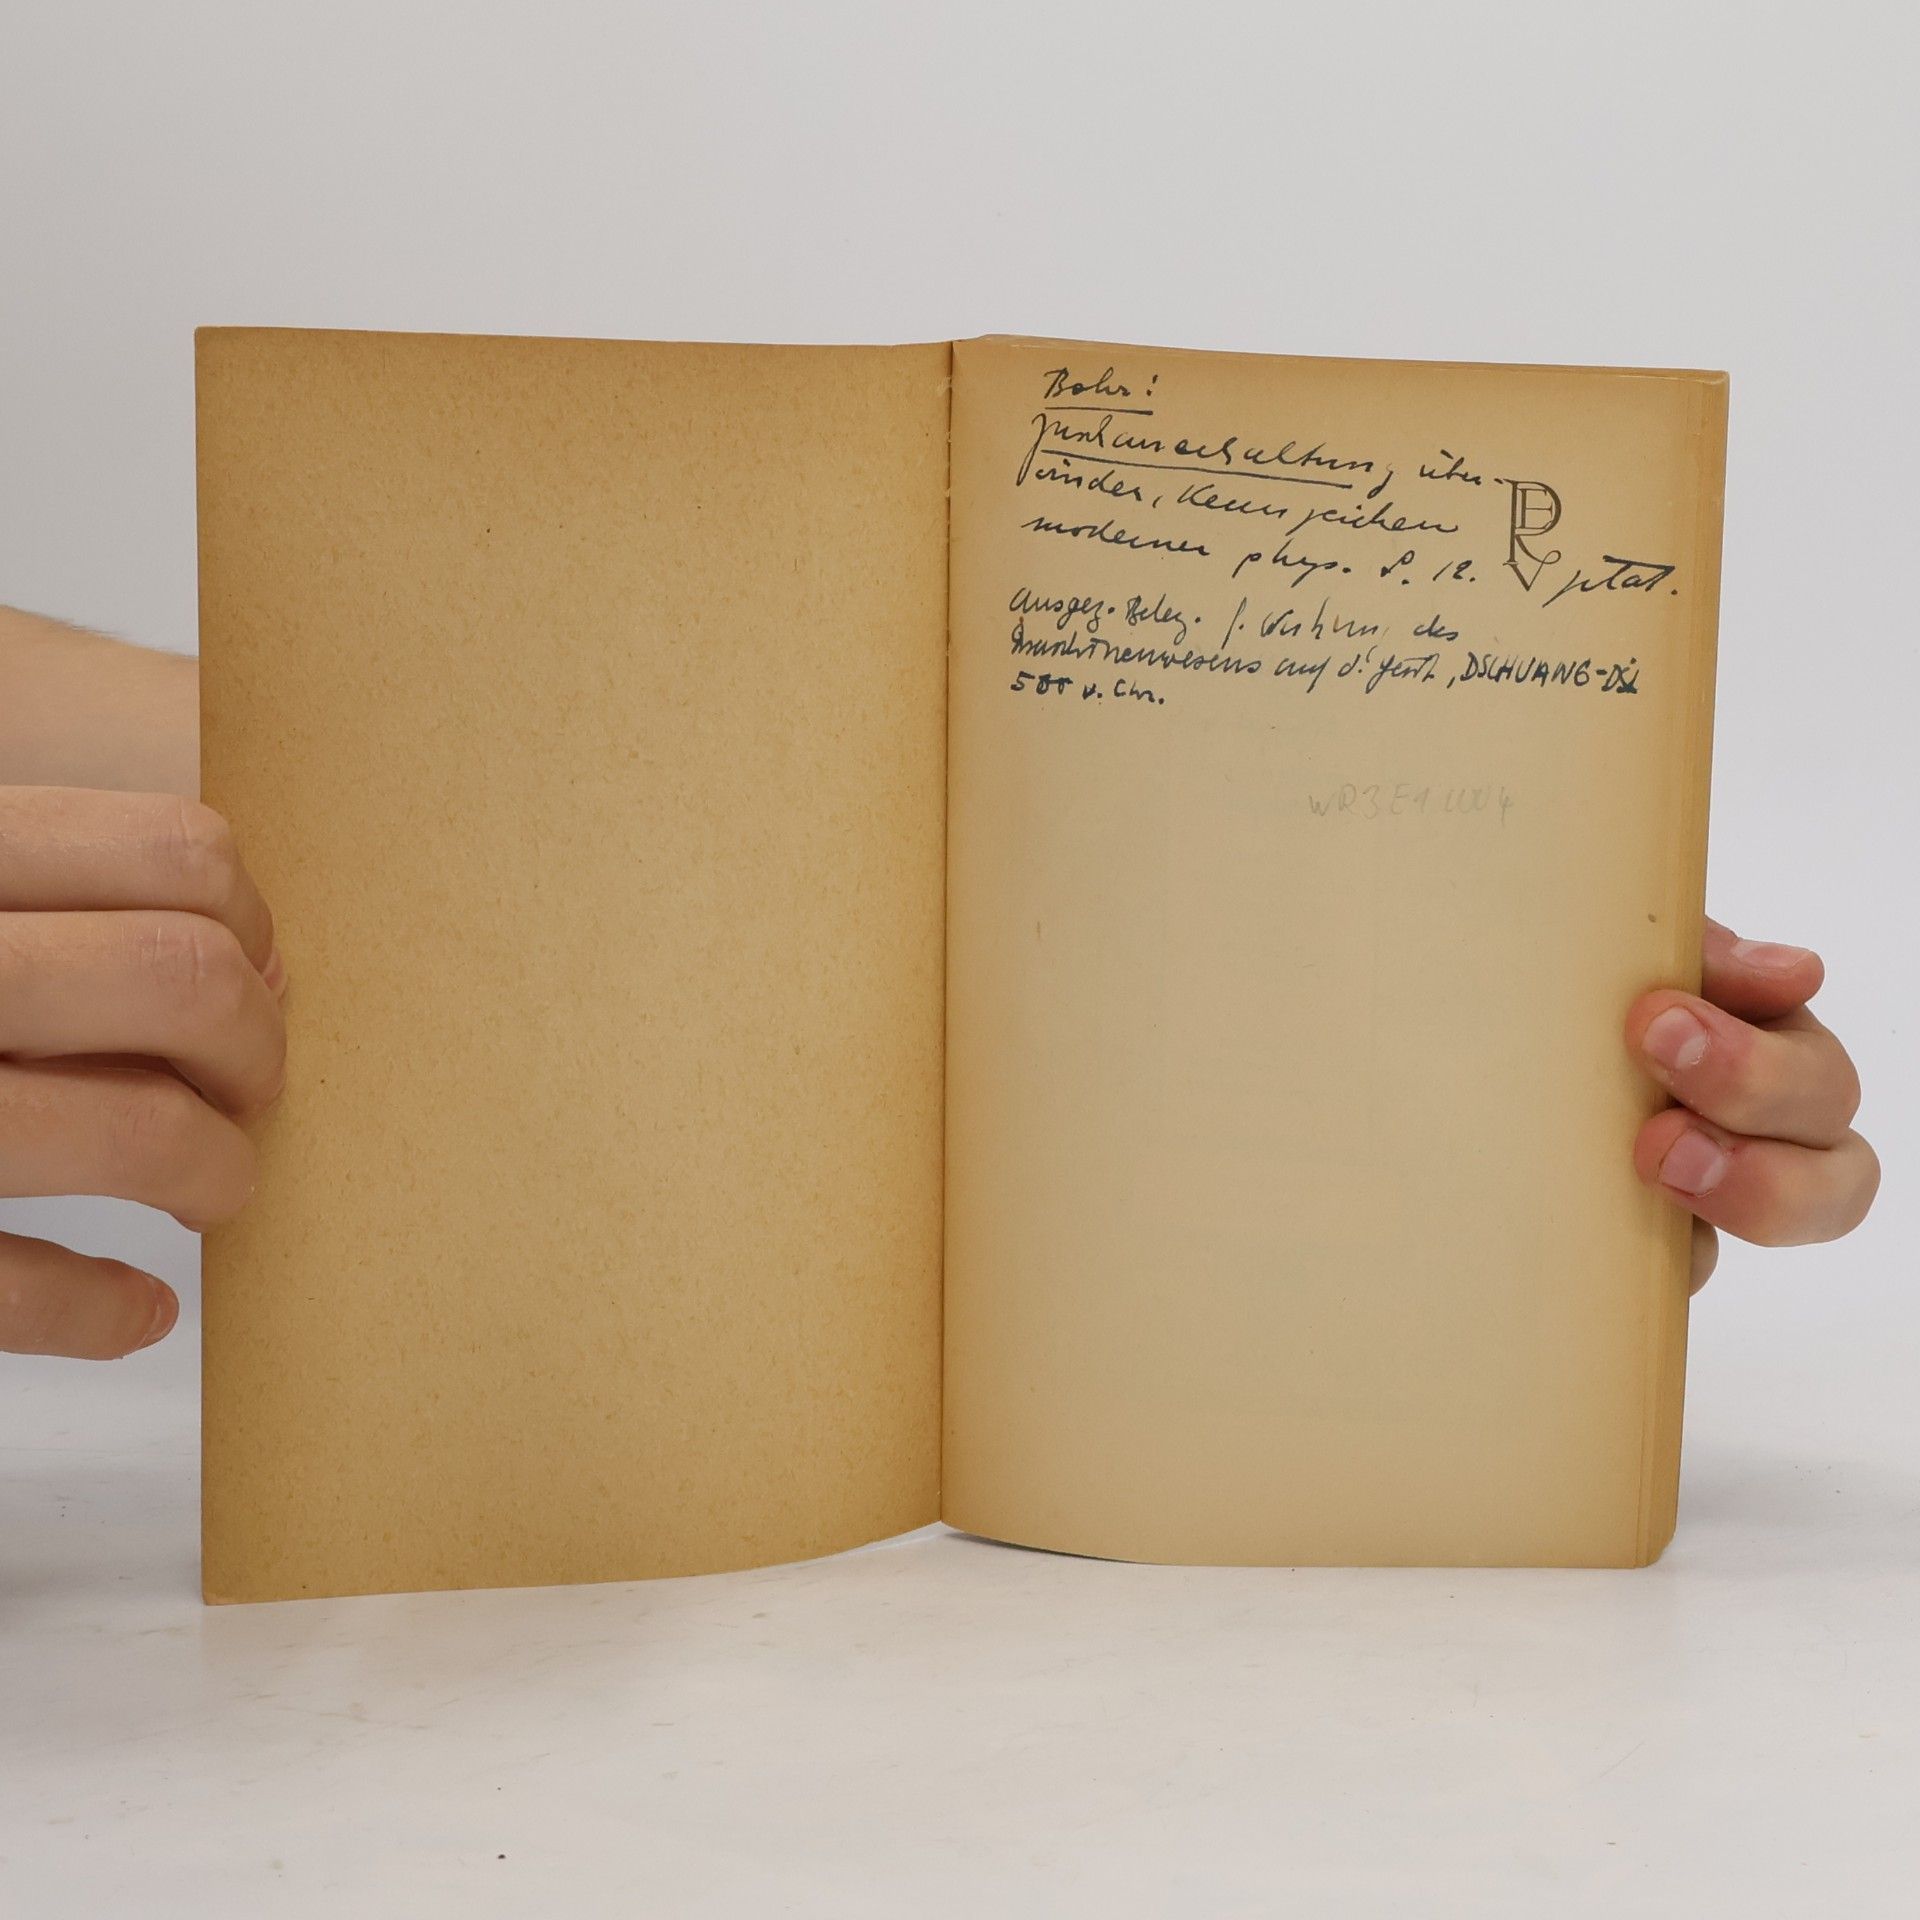 Bohr:
Zuschauerhaltung über-
winden, Kennzeichen
moderner phys. S. 12. zitat.
Ausgez. Beleg. f. Wirkung des
Maschinenwesens auf d. Geist, DSCHUANG-DSI
500 v. Chr.